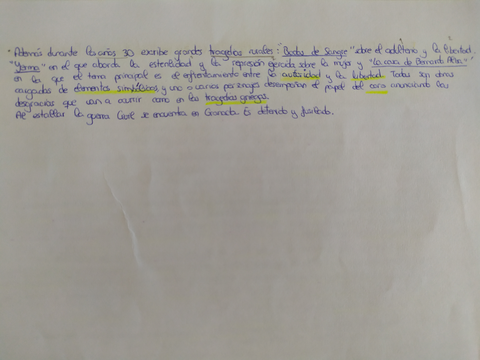 "Además durante los años 30 escribe grandes tragedias rurales: "Bodas de Sangre" sobre el adulterio y la libertad.
"Yerma" en el que aborda la esterilidad y la represión ejercida sobre la mujer y "La casa de Bernarda Alba,"
en la que el tema principal es el enfrentamiento entre la autoridad y la libertad. Todas son obras
cargadas de elementos simbólicos, y uno o varios personajes desempeñan el papel del coro anunciando las
desgracias que van a ocurrir como en las tragedias griegas.
Al estallar la guerra Civil se encuentra en Granada. Es detenido y fusilado.